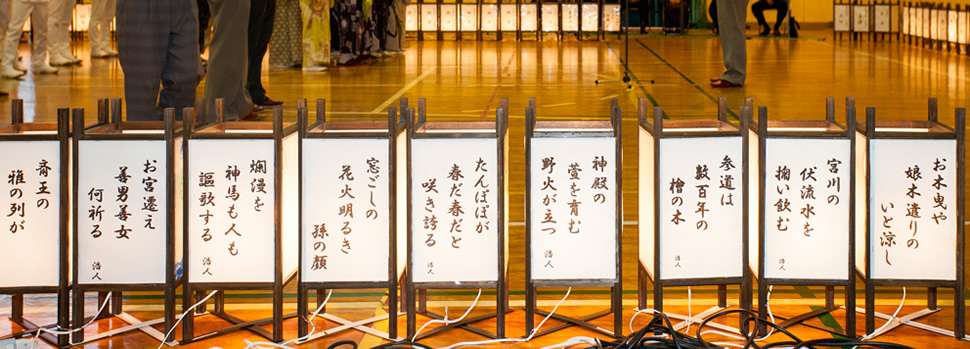 お木曳や
娘木遣りの
いと涼し
宮川の
伏流水を
掬い飲む
浩人
参道は
数百年の
檜の木
浩人
神殿の
萱を育む
野火が立つ
浩人
たんぽぽが
春だ春だと
咲き誇る
窓ごしの
花火明るき
孫の顔
爛漫を
神馬も人も
謳歌する
浩人
お宮遷え
善男善女
何祈る
浩人
斎王の
雅の列が